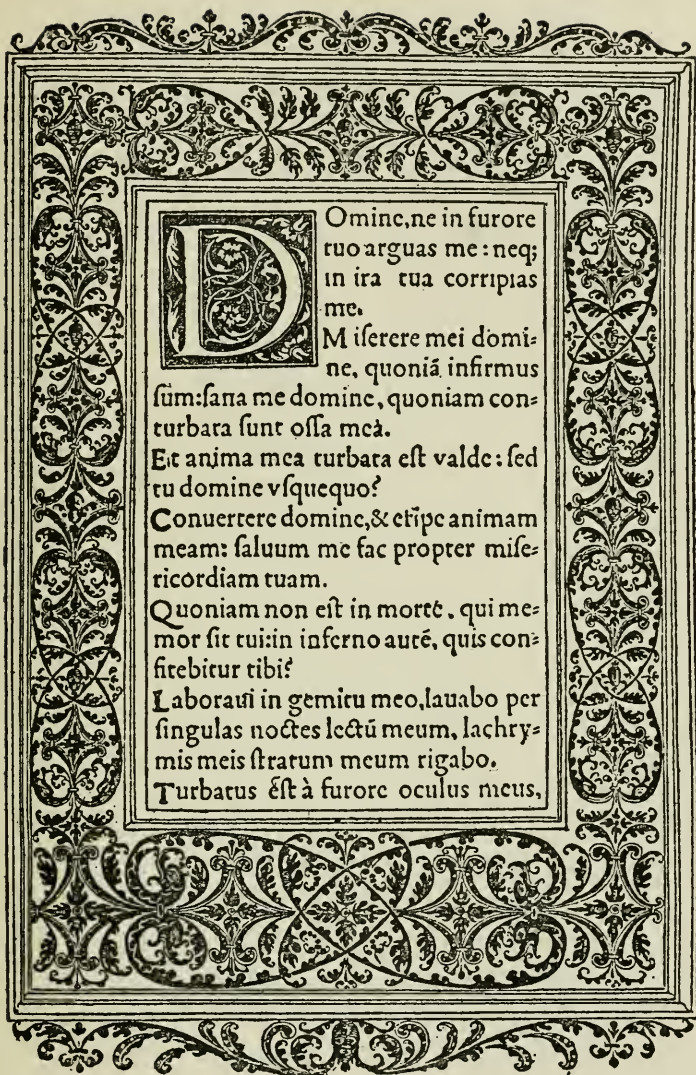 DOmine, ne in furore
tuo arguas me: neq;
in ira tua corripias
me.
Miſerere mei domi=
ne, quoniã infirmus
ſum: ſana me domine, quoniam con=
turbata ſunt oſſa mea.
Et anima mea turbata eſt valde: ſed
tu domine vſquequo?
Conuertere domine, & eripe animam
meam: ſaluum me fac propter miſe=
ricordiam tuam.
Quoniam non eſt in morte, qui me=
mor ſit tui: in inferno autē, quis con=
fitebitur tibi?
Laboraui in gemitu meo, lauabo per
ſingulas noctes lectū meum, lachry=
mis meis ſtratum meum rigabo.
Turbatus eſt à furore oculus meus,